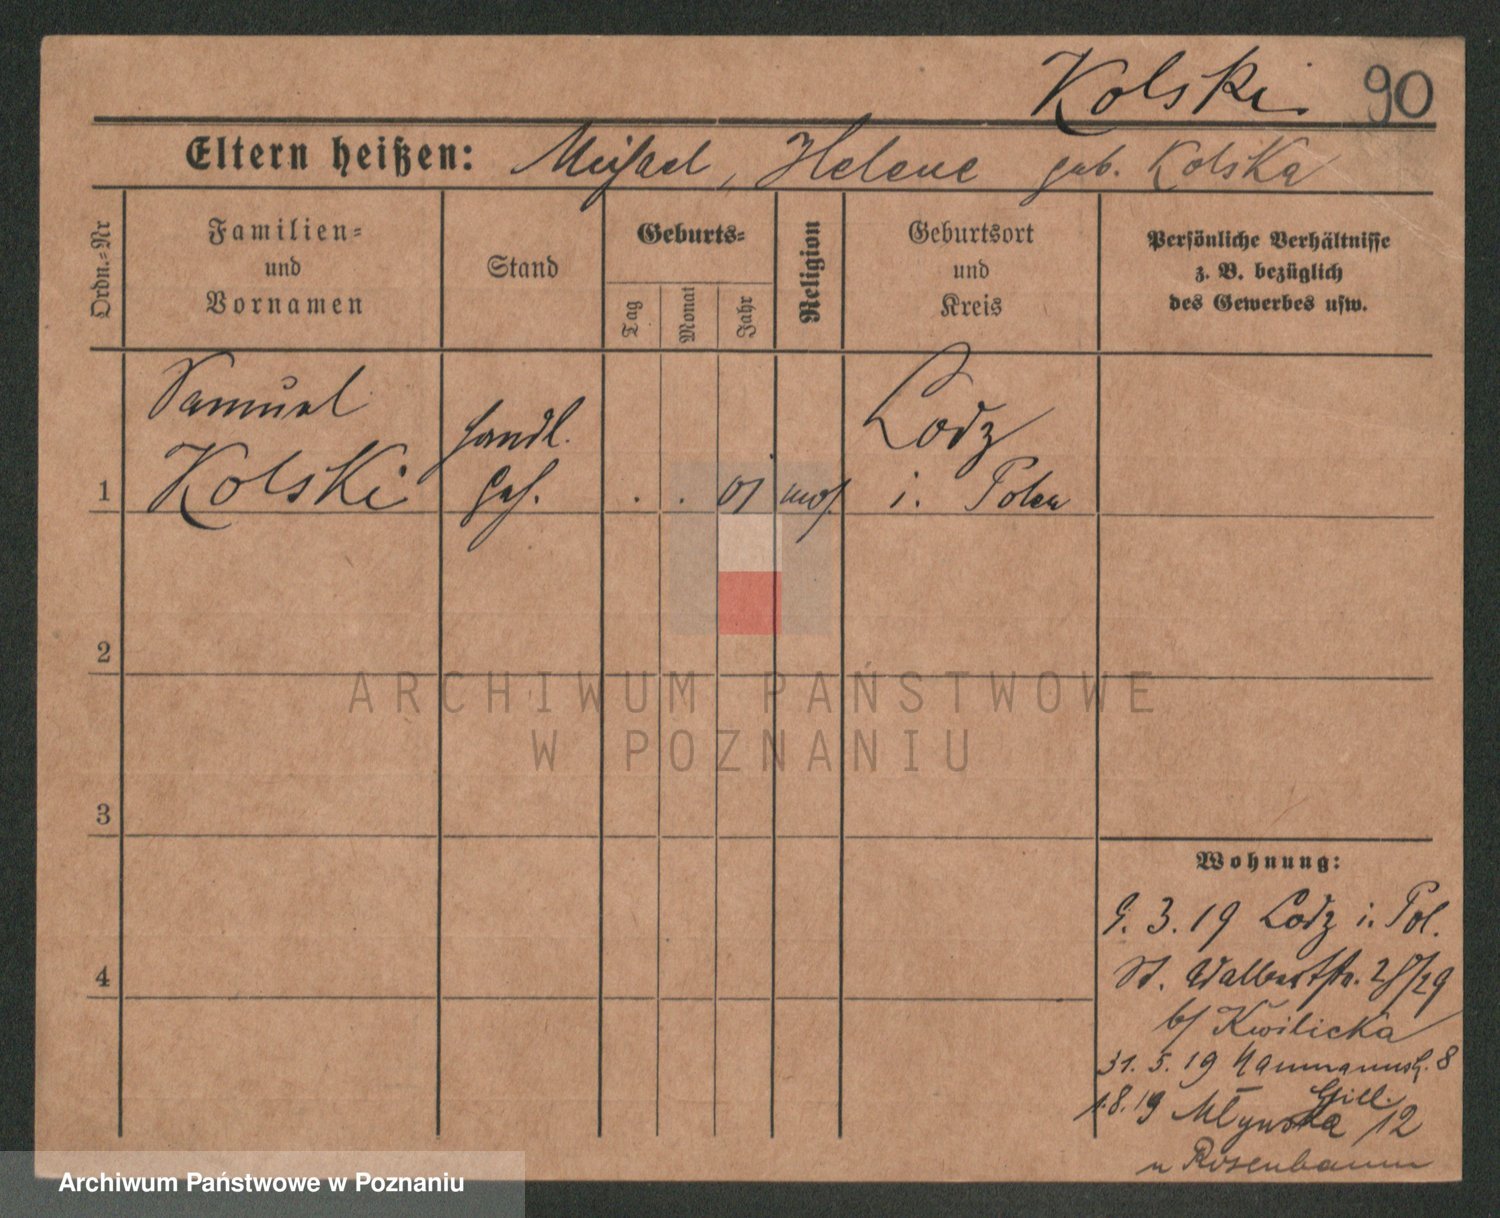 Kolski 90
Eltern heißen: Michael, Helene geb. Kolska
Ordn.=Nr
Familien=
und
Vornamen
Stand
Geburts=
Tag
Monat
Jahr
Religion
Geburtsort
und
Kreis
Persönliche Verhältnisse
z. B. bezüglich
des Gewerbes usw.
Samuel
Kolski
Handl.
Geh.
1
. . 01 mos.
Lodz
i. Polen
2
ARCHIWUM PAŃSTWOWE
W POZNANIU
3
Wohnung:
9. 3. 19 Lodz i. Pol.
4
St. Adalbertstr. 28/29
b/ Kwilicka
31. 5. 19 8
Gill.
1.8.19 Młynska 12
u Rosenbaum
Archiwum Państwowe w Poznaniu